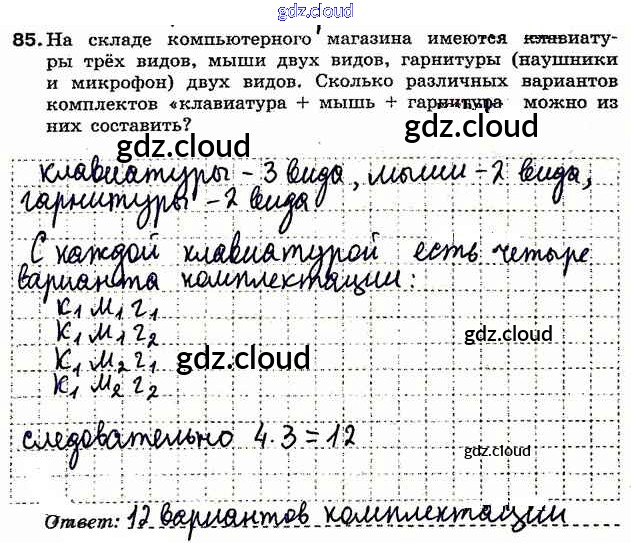 gdz.cloud
85. На складе компьютерного магазина имеются клавиату-
ры трёх видов, мыши двух видов, гарнитуры (наушники
и микрофон) двух видов. Сколько различных вариантов
комплектов «клавиатура + мышь + гарнитура» можно из
них составить?
gdz.cloud
gdz.cloud
клавиатуры - 3 вида, мыши - 2 вида,
гарнитуры - 2 вида
С каждой клавиатурой есть четыре
варианта комплектации:
К₁ М₁ г₁
К₁ М₁ г₂
gdz.cloud
К₁ М₂ г₁
gdz.cloud
К₁ М₂ г₂
следовательно 4·3=12
gdz.cloud
Ответ: 12 вариантов комплектации